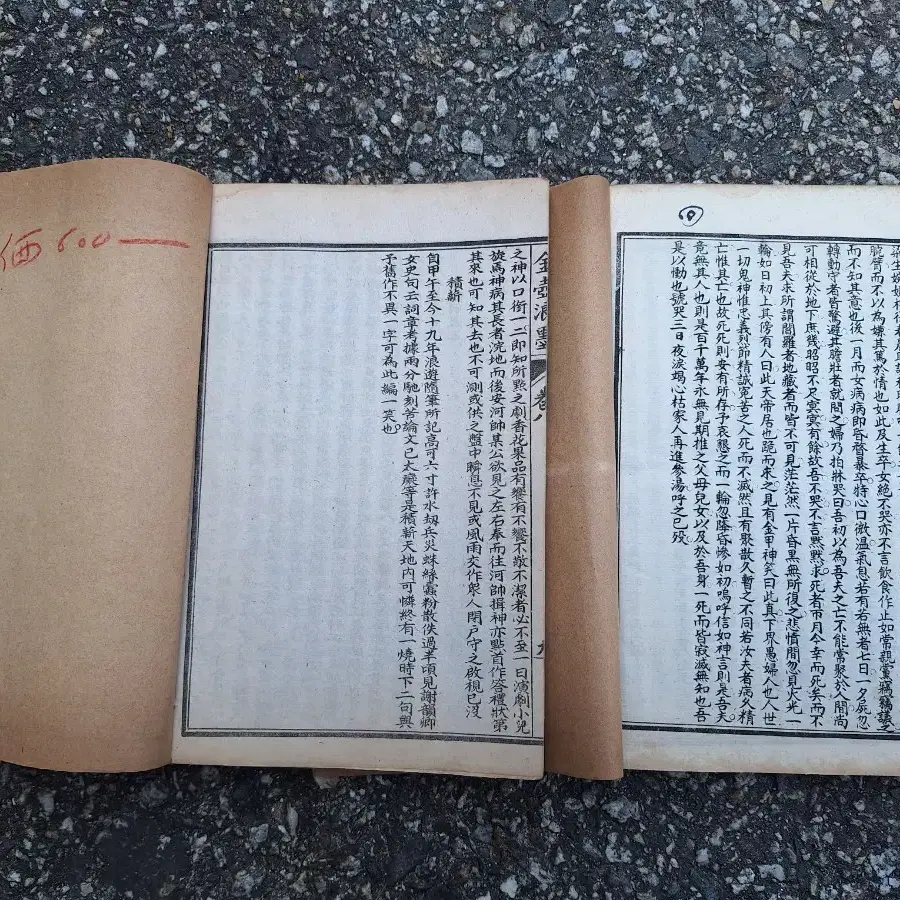 腕臂而不以為嫌其篤於情也如此及生卒女絕不哭亦不言飲食作止如常親黨竊竊議之
而不知其意也後一月而女病病即昏瞀暴卒特心口微溫氣息若有若無者七日一夕屍忽
轉動守者皆驚避其膽壯者就問之婦乃拍牀哭曰吾初以為吾夫之亡不能常聚於人間尚
可相從於地下庶幾昭昭不足冥冥有餘故吾不哭不言黙黙求死者帀月今幸而死矣而不
見吾夫求所謂閻羅者地藏者而皆不可見茫茫然一片昏黑無所復之悲憤間忽見火光一
輪如日初上其傍有人曰此天帝居也跪而求之見有金甲神笑曰此真下界愚婦人也人世
一切鬼神惟忠義烈節精誠冤苦之人死而不滅然且有聚散久暫之不同若汝夫者病久精
亡惟其亡也故死死則安有所存乎哀懇之而一輪忽墮昏慘如初嗚呼信如神言則是吾夫
竟無其人也則是百千萬年永無見期推之父母兒女以及於吾身一死而皆寂滅無知也吾
是以慟也號哭三日夜淚竭心枯家人再進參湯呼之已歿
金壺浪墨 卷八 九
之神以口銜一二即知所點之劇香花果品有饗有不饗不敬不潔者必不至一日演劇小兒
旋馬神病其長者浣地而後安河帥某公欲見之左右奉而往河帥揖神亦點首作答禮狀第
其來也可知其去也不可測或供之盤中瞬息不見或風雨交作眾人閉戶守之啟視已沒
積薪
自甲午至今十九年浪遊隨筆所記高可六寸許水刼兵火蛛絲蠹粉散佚過半頃見謝韻卿
女史句云詞章考據兩分馳刻苦論文已太癡等是積薪天地內可憐終有一燒時下二句與
予舊作不異一字可為此編一笑也
価 600—